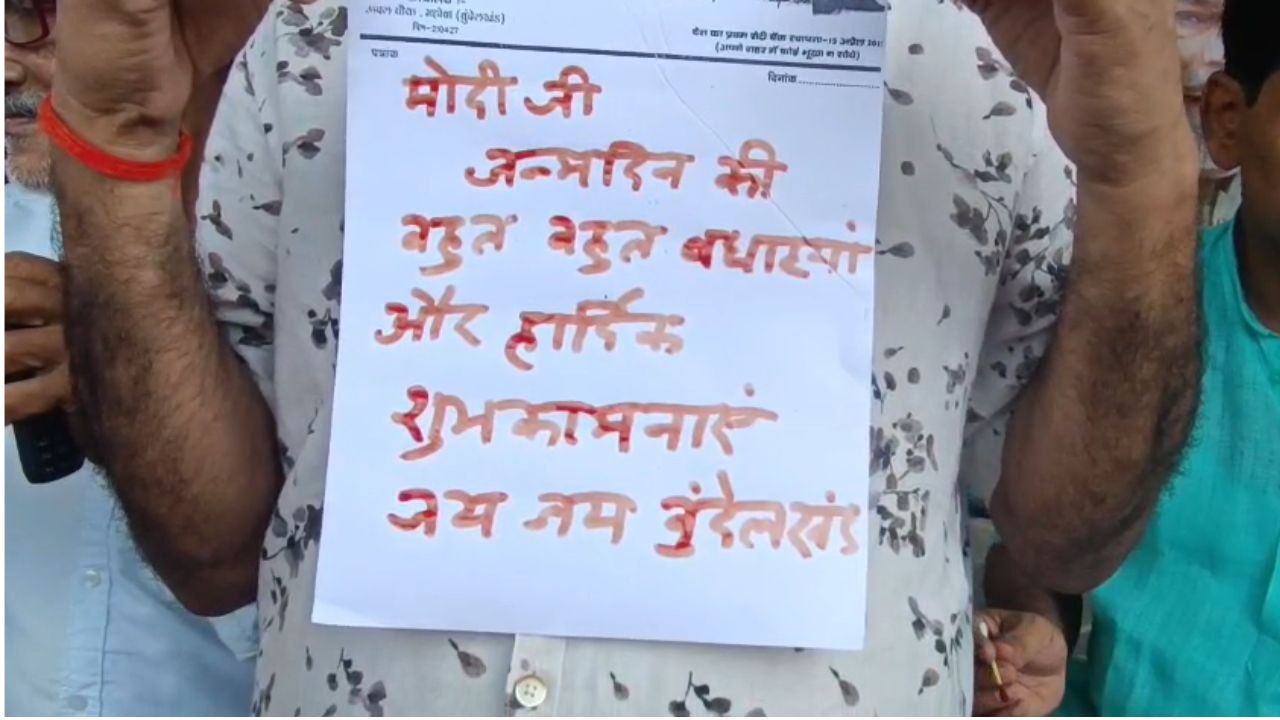 आल्हा चौक, महोबा (बुंदेलखंड)
पिन-210427
देश का प्रथम रोटी बैंक स्थापना-15 अप्रैल 201
(अपने शहर में कोई भूखा न सोये)
पत्रांक
दिनांक
मोदी जी
जन्मदिन की
बहुत बहुत बधाइयां
और हार्दिक
शुभकामनाएं
जय जय बुंदेलखंड